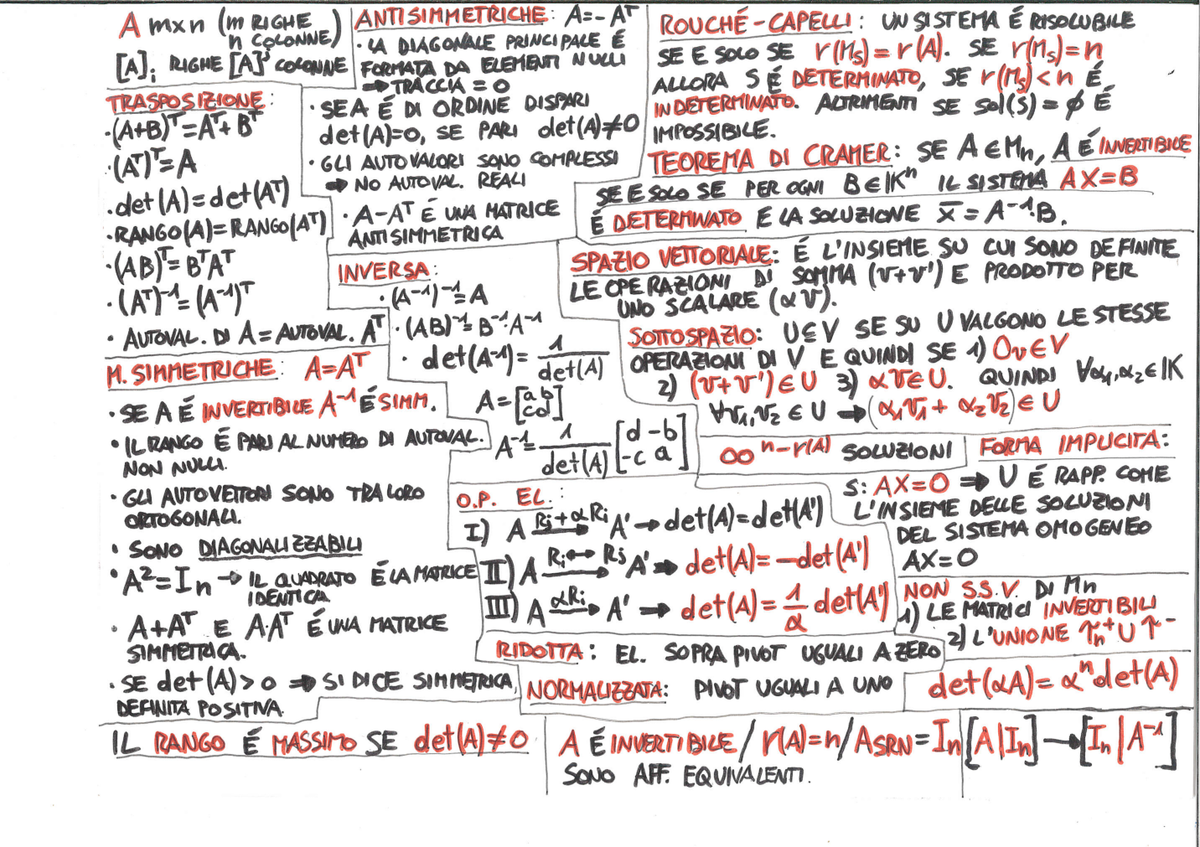 A m×n (m RIGHE
n COLONNE)
[A]ᵢ RIGHE [A]ʲ COLONNE
TRASPOSIZIONE:
·(A+B)ᵀ=Aᵀ+Bᵀ
·(Aᵀ)ᵀ=A
·det(A)=det(Aᵀ)
·RANGO(A)=RANGO(Aᵀ)
·(AB)ᵀ=BᵀAᵀ
·(Aᵀ)⁻¹=(A⁻¹)ᵀ
· AUTOVAL. DI A = AUTOVAL. Aᵀ
M. SIMMETRICHE: A=Aᵀ
· SE A É INVERTIBILE A⁻¹ É SIMM.
· IL RANGO É PARI AL NUMERO DI AUTOVAL.
NON NULLI.
· GLI AUTOVETTORI SONO TRA LORO
ORTOGONALI.
· SONO DIAGONALIZZABILI
· A²=Iₙ → IL QUADRATO É LA MATRICE
IDENTICA
· A+Aᵀ E A·Aᵀ É UNA MATRICE
SIMMETRICA.
· SE det(A)>0 ⇒ SI DICE SIMMETRICA
DEFINITA POSITIVA.
ANTISIMMETRICHE: A=-Aᵀ
· LA DIAGONALE PRINCIPALE É
FORMATA DA ELEMENTI NULLI
⇒ TRACCIA = 0
· SE A É DI ORDINE DISPARI
det(A)=0, SE PARI det(A)≠0
· GLI AUTOVALORI SONO COMPLESSI
⇒ NO AUTOVAL. REALI
· A-Aᵀ É UNA MATRICE
ANTISIMMETRICA
INVERSA:
· (A⁻¹)⁻¹=A
· (AB)⁻¹=B⁻¹·A⁻¹
· det(A⁻¹)= 1/det(A)
A=[a b
c d]
A⁻¹= 1/det(A) [d -b
-c a]
O.P. EL.:
I) A Rᵢ+αRⱼ→ A' → det(A)=det(A')
II) A Rᵢ↔Rⱼ→ A' ⇒ det(A)=-det(A')
III) A αRᵢ→ A' ⇒ det(A)= 1/α det(A')
RIDOTTA: EL. SOPRA PIVOT UGUALI A ZERO
NORMALIZZATA: PIVOT UGUALI A UNO
ROUCHÉ-CAPELLI: UN SISTEMA É RISOLUBILE
SE E SOLO SE r(Mₛ)=r(A). SE r(Mₛ)=n
ALLORA S É DETERMINATO, SE r(Mₛ)<n É
INDETERMINATO. ALTRIMENTI SE Sol(S)=∅ É
IMPOSSIBILE.
TEOREMA DI CRAMER: SE A∈Mₙ, A É INVERTIBILE
SE E SOLO SE PER OGNI B∈𝕂ⁿ IL SISTEMA AX=B
É DETERMINATO E LA SOLUZIONE x̄=A⁻¹·B.
SPAZIO VETTORIALE: É L'INSIEME SU CUI SONO DEFINITE
LE OPERAZIONI DI SOMMA (v+v') E PRODOTTO PER
UNO SCALARE (αv).
SOTTOSPAZIO: U⊆V SE SU U VALGONO LE STESSE
OPERAZIONI DI V E QUINDI SE 1) 0ᵥ∈V
2) (v+v')∈U 3) αv∈U. QUINDI ∀α₁,α₂∈𝕂
∀v₁,v₂∈U → (α₁v₁+α₂v₂)∈U
∞ⁿ⁻ʳ⁽ᴬ⁾ SOLUZIONI
FORMA IMPLICITA:
S: AX=0 ⇒ U É RAPP. COME
L'INSIEME DELLE SOLUZIONI
DEL SISTEMA OMOGENEO
AX=0
NON S.S.V. DI Mn
1) LE MATRICI INVERTIBILI
2) L'UNIONE τₙ⁺∪τ⁻
det(αA)=αⁿdet(A)
IL RANGO É MASSIMO SE det(A)≠0
A É INVERTIBILE / r(A)=n / ASRN=Iₙ
SONO AFF. EQUIVALENTI.
[A|Iₙ]→[Iₙ|A⁻¹]